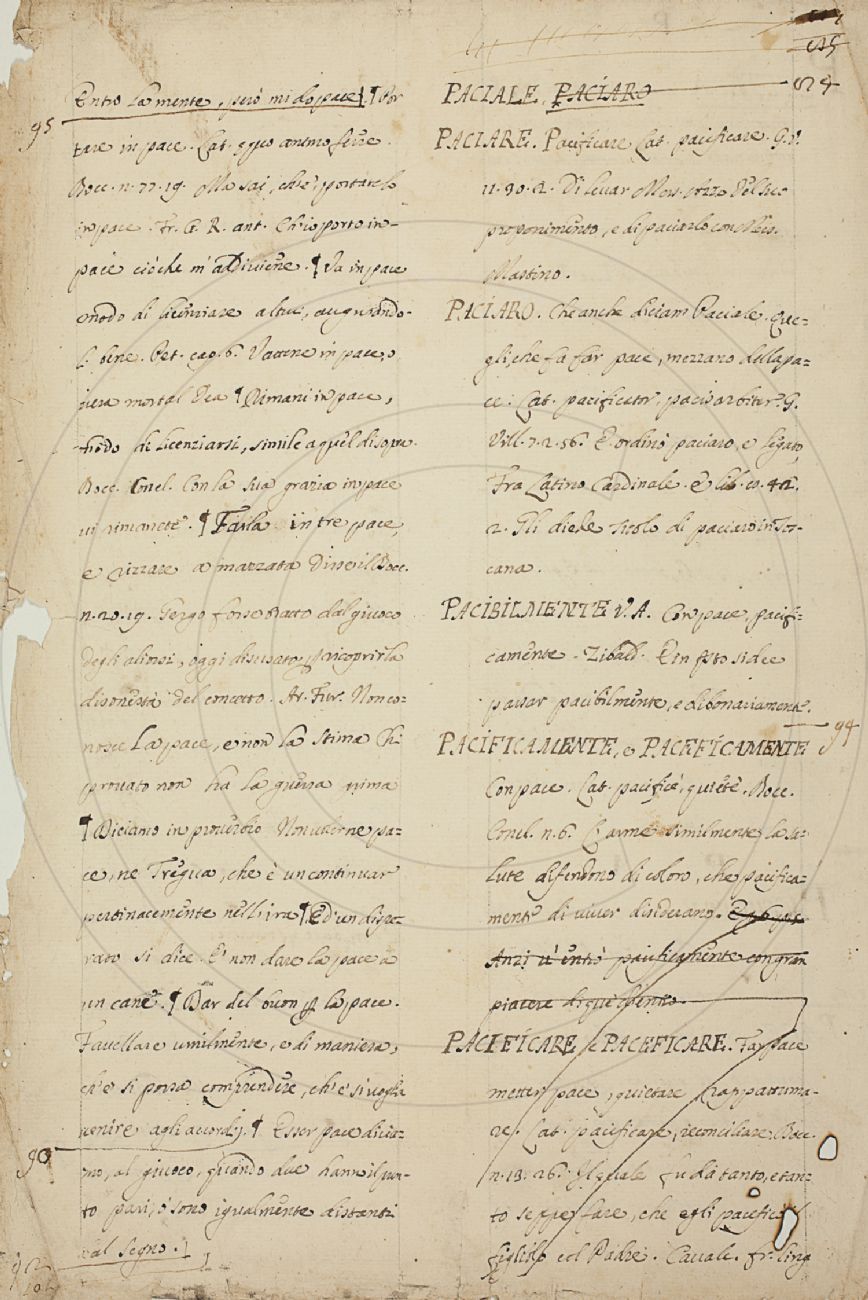 Entro la mente, però mi do pace ¶ Por
95
tare in pace. Lat. equo animo ferre.
Bocc. n. 77. 19. Ma sai, che è portarelo
in pace. Fr. G. R. ant. Ch'io porto in-
pace ciòche m'addiviene. ¶ Va in pace
modo di licenziare altrui, augurando-
li bene. Pet. cap. 6. Vattene in pace, o
vera mortal Dea ¶ Rimani in pace,
modo di licenziarsi, simile a quel di sopra.
Bocc. Concl. Con la sua grazia in pace
vi rimanete. ¶ Farla in tre pace,
e rizzare a mazzata disse il Bocc.
n. 20. 19. Gergo forse tratto dal giuoco
degli aliossi, oggi disusato, ricoprir la
disonestà del concetto. Ar. Fur. Non co-
nosce La pace, e non la stima Chi
provato non ha la guerra prima
¶ Diciamo in proverbio Non voler ne pa=
ce, ne Tregua, che è un continuar
pertinacemente nell'ira ¶ E d'un dispe-
rato si dice. E' non dare la pace a
un cane. ¶ Dar del buon la pace.
Favellare umilmente, e di maniera,
che si possa comprendere, che si voglia
venire agli accordi. ¶ Esser pace dicia-
90
mo, al giuoco, quando due hanno il pun-
to pari, o sono igualmente distanti
dal segno.
PACIALE. PACIARO
PACIARE. Pacificare Lat. pacificare. G. V.
11. 90. 2. Di levar Mess. del suo
proponimento, e di paciarlo con Mess.
Mastino.
PACIARO. Che anche diciam Paciale. Que=
gli, che fa far pace, mezzano della pa=
ce. Lat. pacificator, pacis arbiter. G.
Vill. 7. 2. 56. E ordinò paciaro, e legato,
Fra Latino Cardinale. e lib. 10. 42.
2. Gli diede titolo di paciaro in Tos-
cana.
PACIBILMENTE V. A. Con pace, pacifi=
camente. Zibald. E in questo si dee
passar pacibilmente, e dibonariamente.
94
PACIFICAMENTE, e PACEFICAMENTE
Con pace. Lat. pacificè, quietè. Bocc.
Concl. n. 6. L'arme similmente la sa=
lute difendono di coloro, che pacifica=
mente di viver disiderano.
Anzi v'entrò pacificamente con gran
piacere di quei dentro.
PACIFICARE e PACEFICARE. Far pace
metter pace, quietare rappattuma-
re. Lat. pacificare, reconciliare. Bocc.
n. 18. 26. Il quale fu da tanto, e tan-
to seppe fare, che egli paceficò il
figliolo col Padre. Cavalc. fr. ling